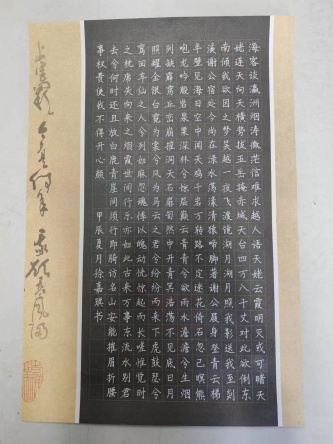 海客谈瀛洲烟涛微茫信难求越人语天姥云霞明灭或可睹天
姥连天向天横势拔五岳掩赤城天台四万八千丈对此欲倒东
南倾我欲因之梦吴越一夜飞渡镜湖月湖月照我影送我至剡
溪谢公宿处今尚在渌水荡漾清猿啼脚著谢公屐身登青云梯
半壁见海日空中闻天鸡千岩万转路不定迷花倚石忽已暝熊
咆龙吟殷岩泉栗深林兮惊层巅云青青兮欲雨水澹澹兮生烟
列缺霹雳丘峦崩摧洞天石扉訇然中开青冥浩荡不见底日月
照耀金银台霓为衣兮风为马云之君兮纷纷而来下虎鼓瑟兮
鸾回车仙之人兮列如麻忽魂悸以魄动恍惊起而长嗟惟觉时
之枕席失向来之烟霞世间行乐亦如此古来万事东流水别君
去兮何时还且放白鹿青崖间须行即骑访名山安能摧眉折腰
事权贵使我不得开心颜 甲辰夏月徐嘉琪书